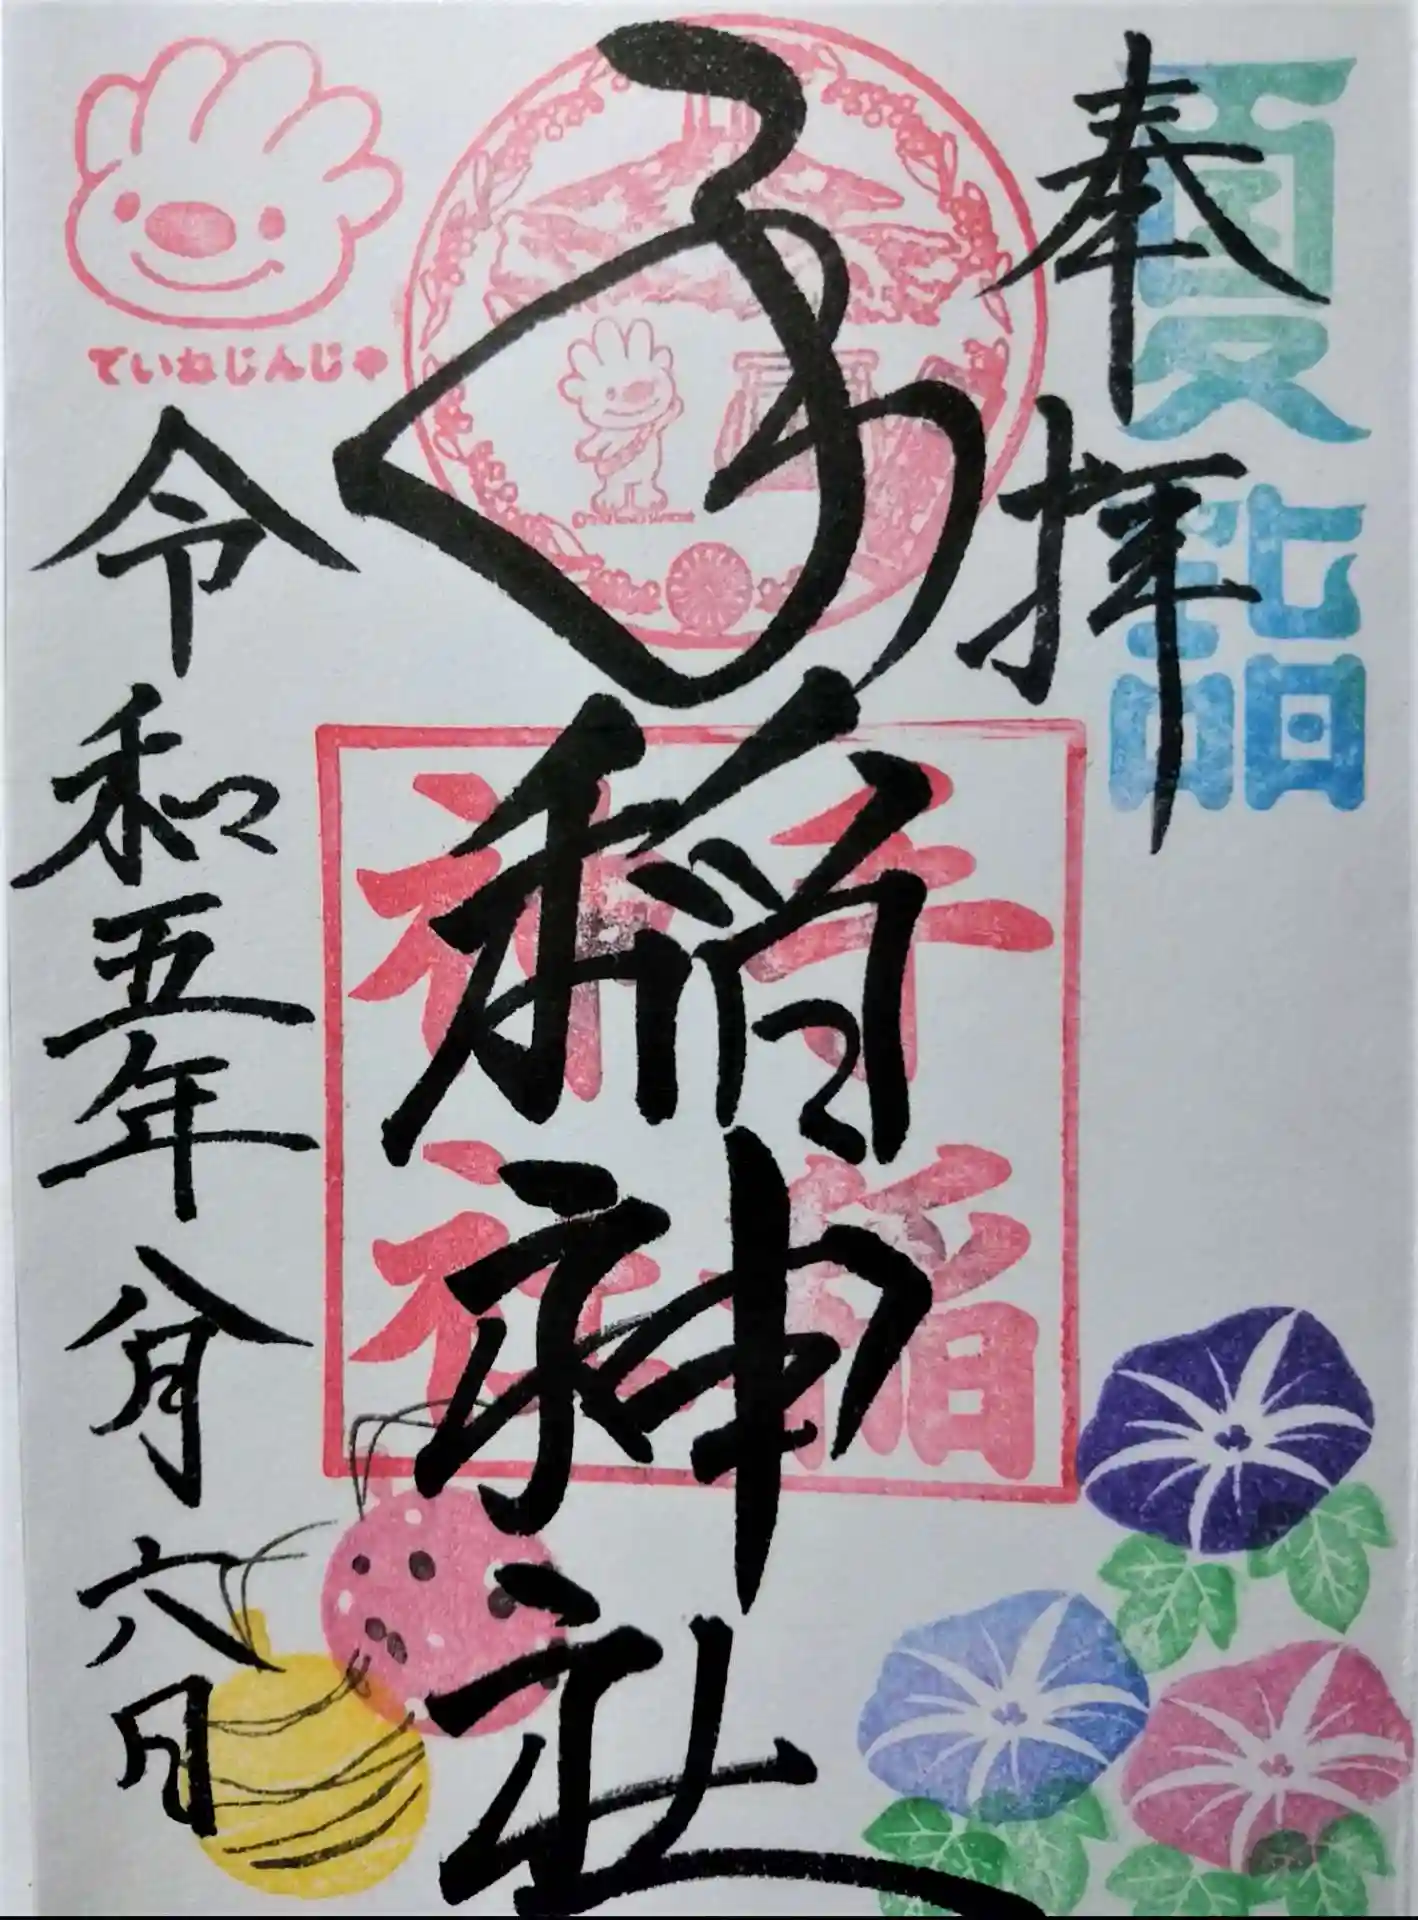 夏詣
奉拝
手稲神社
手稲神社
ていねじんじゃ
令和五年八月六日